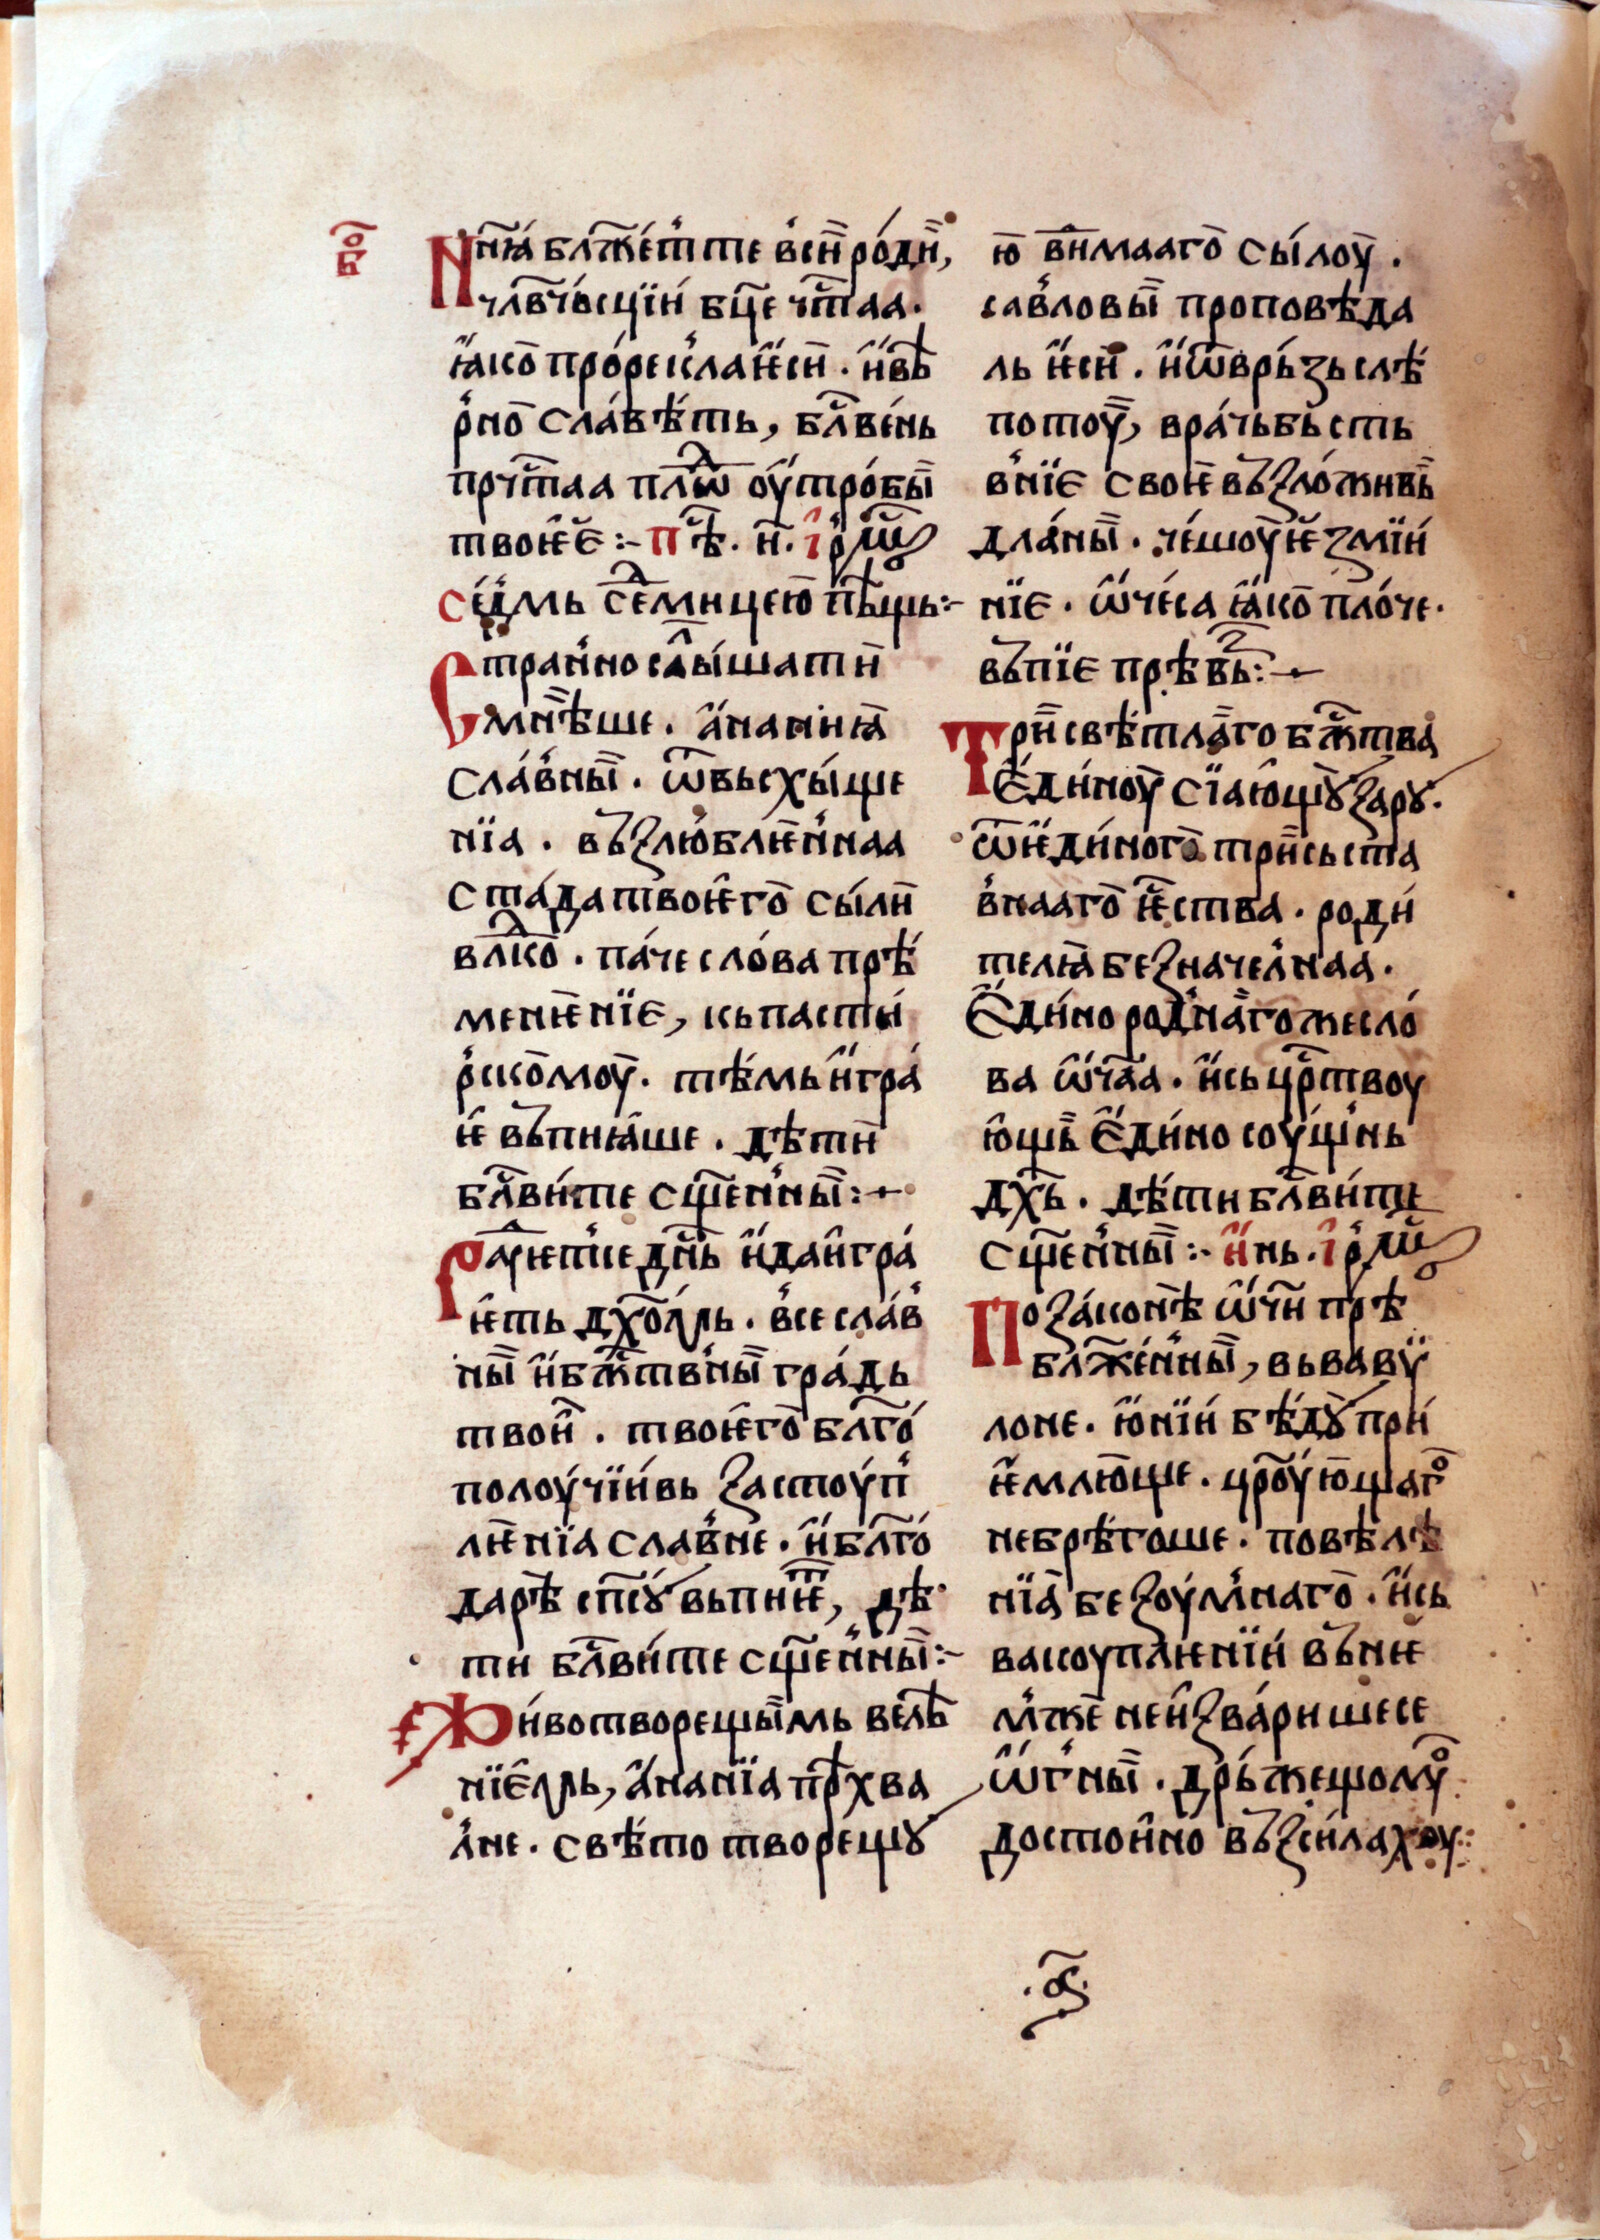 бо҃
Нн҃ꙗ́ блж҃е́т те в҆си̏ ро́ди̏,
чл҃вчьсцїи́ бц҃е чт҃аа.
ꙗ҆́ко̀ про́рекла ѥ҆си̏. и҆ вѣ
р҆но̀ сла́вѣть, бл҃ве́нь
прч҃таа пло́д ѡу҆тро́бы̏
твоѥ҆є҆ :~ пѣ҃. и҃. і҆рмⷭ҇
се́д҆мь се́дмицею̀ пѣ́щь :~
Стран҆но слы́шати̏
мнѣ̏ше. а҆нани́ꙗ
сла́в҆ны̏. ѿ вьсхы́ще
нїа. въꙁлю́блѥн҆наа
ста́да твоѥ҆го̀ сы́ли̏
влⷣко̀. па́че сло́ва прѣ́
менѥ́нїє, кь пасты́
р҆ско̀моу̀. тѣ́мь и҆ гра́
ѥ҆ въпиꙗ́ше. дѣти̏
бл҃ви́те сщ҃ен҆ны̏ :~
Радꙋѥт се дн҃ь и҆ да и҆гра́
ѥ҆ть дх҃о́мь. в҆сесла́в҆
ны̏ и҆ бж҃тв҆ны̏ гра́дь
твои҆. твоѥ҆го̀ бл҃го́
полоу́чїи́вь ꙁастоу́п҆
лѥнїа сла́в҆не. и҆ бл҃го
дарѣ̀ сп҃сꙋ вьпиѥ҆т, дѣ
ти бл҃ви́те сщ҃ен҆ны̏ :~
Жи́вотворещы́мь велѣ
нїє҆мь, а҆на́нїа прѣхва
л҆не. свѣ́то творещꙋ
ю҆ в҆нима́аго̀ сы́лоу̀.
са́в҆ловы̏ проповѣда
ль ѥ҆си̏. и҆ ѿврь́ꙁь слѣ́
потоу̏, вра́чьбьсть
в҆нїє своѥ̀ въꙁло́живь̏
дла́ны̏. че́шоу̀ѥ ꙁмїи́
нїє. ѡ҆че́са ꙗ҆́ко̀ пло́че.
въпїє прѣвⷥь :~
Три̏свѣтла̏го бж҃тва
є҆ди́ноу̀ сїаю҆́щꙋ ꙁарꙋ.
ѿ ѥ҆ди́ного̀ три̏сьста
в҆нааго̀ ѥ҆ства. роди́
телꙗ́ беꙁначел҆наа.
Є҆ди́нород҆на̏го же сло́
ва ѡ҆ч҃аа. и҆ сь цр҃твоу
ю҆щь̏ є҆ди́но соу́щ҆нь
дх҃ь. дѣ́ти бл҃ви́те
сщ҃ен҆ны̏ :~ и҆нь. і҆рмⷭ҇
По ꙁа́конѣ ѡ҆чи̏ прѣ
блж҃е́н҆ны̏, вь вавӱ
лоне. ю҆нїи́ бѣ́дꙋ при́
ѥ҆млю̀ще. цр҃оу́ю̀щагⷪ
небрѣ́гоше. повѣлѣ
нїа̀ беꙁоу́м҆наго̀. и҆ сь
вакоуплѥ́нїи́ въ нѥ
м҆жѐ не и҆ꙁва́рише се
ѡ҆г҆ны̏. дрь́жещомꙋ̏
досто́и҆но въꙁси́лахоу :
.ѻ҃ѕ.